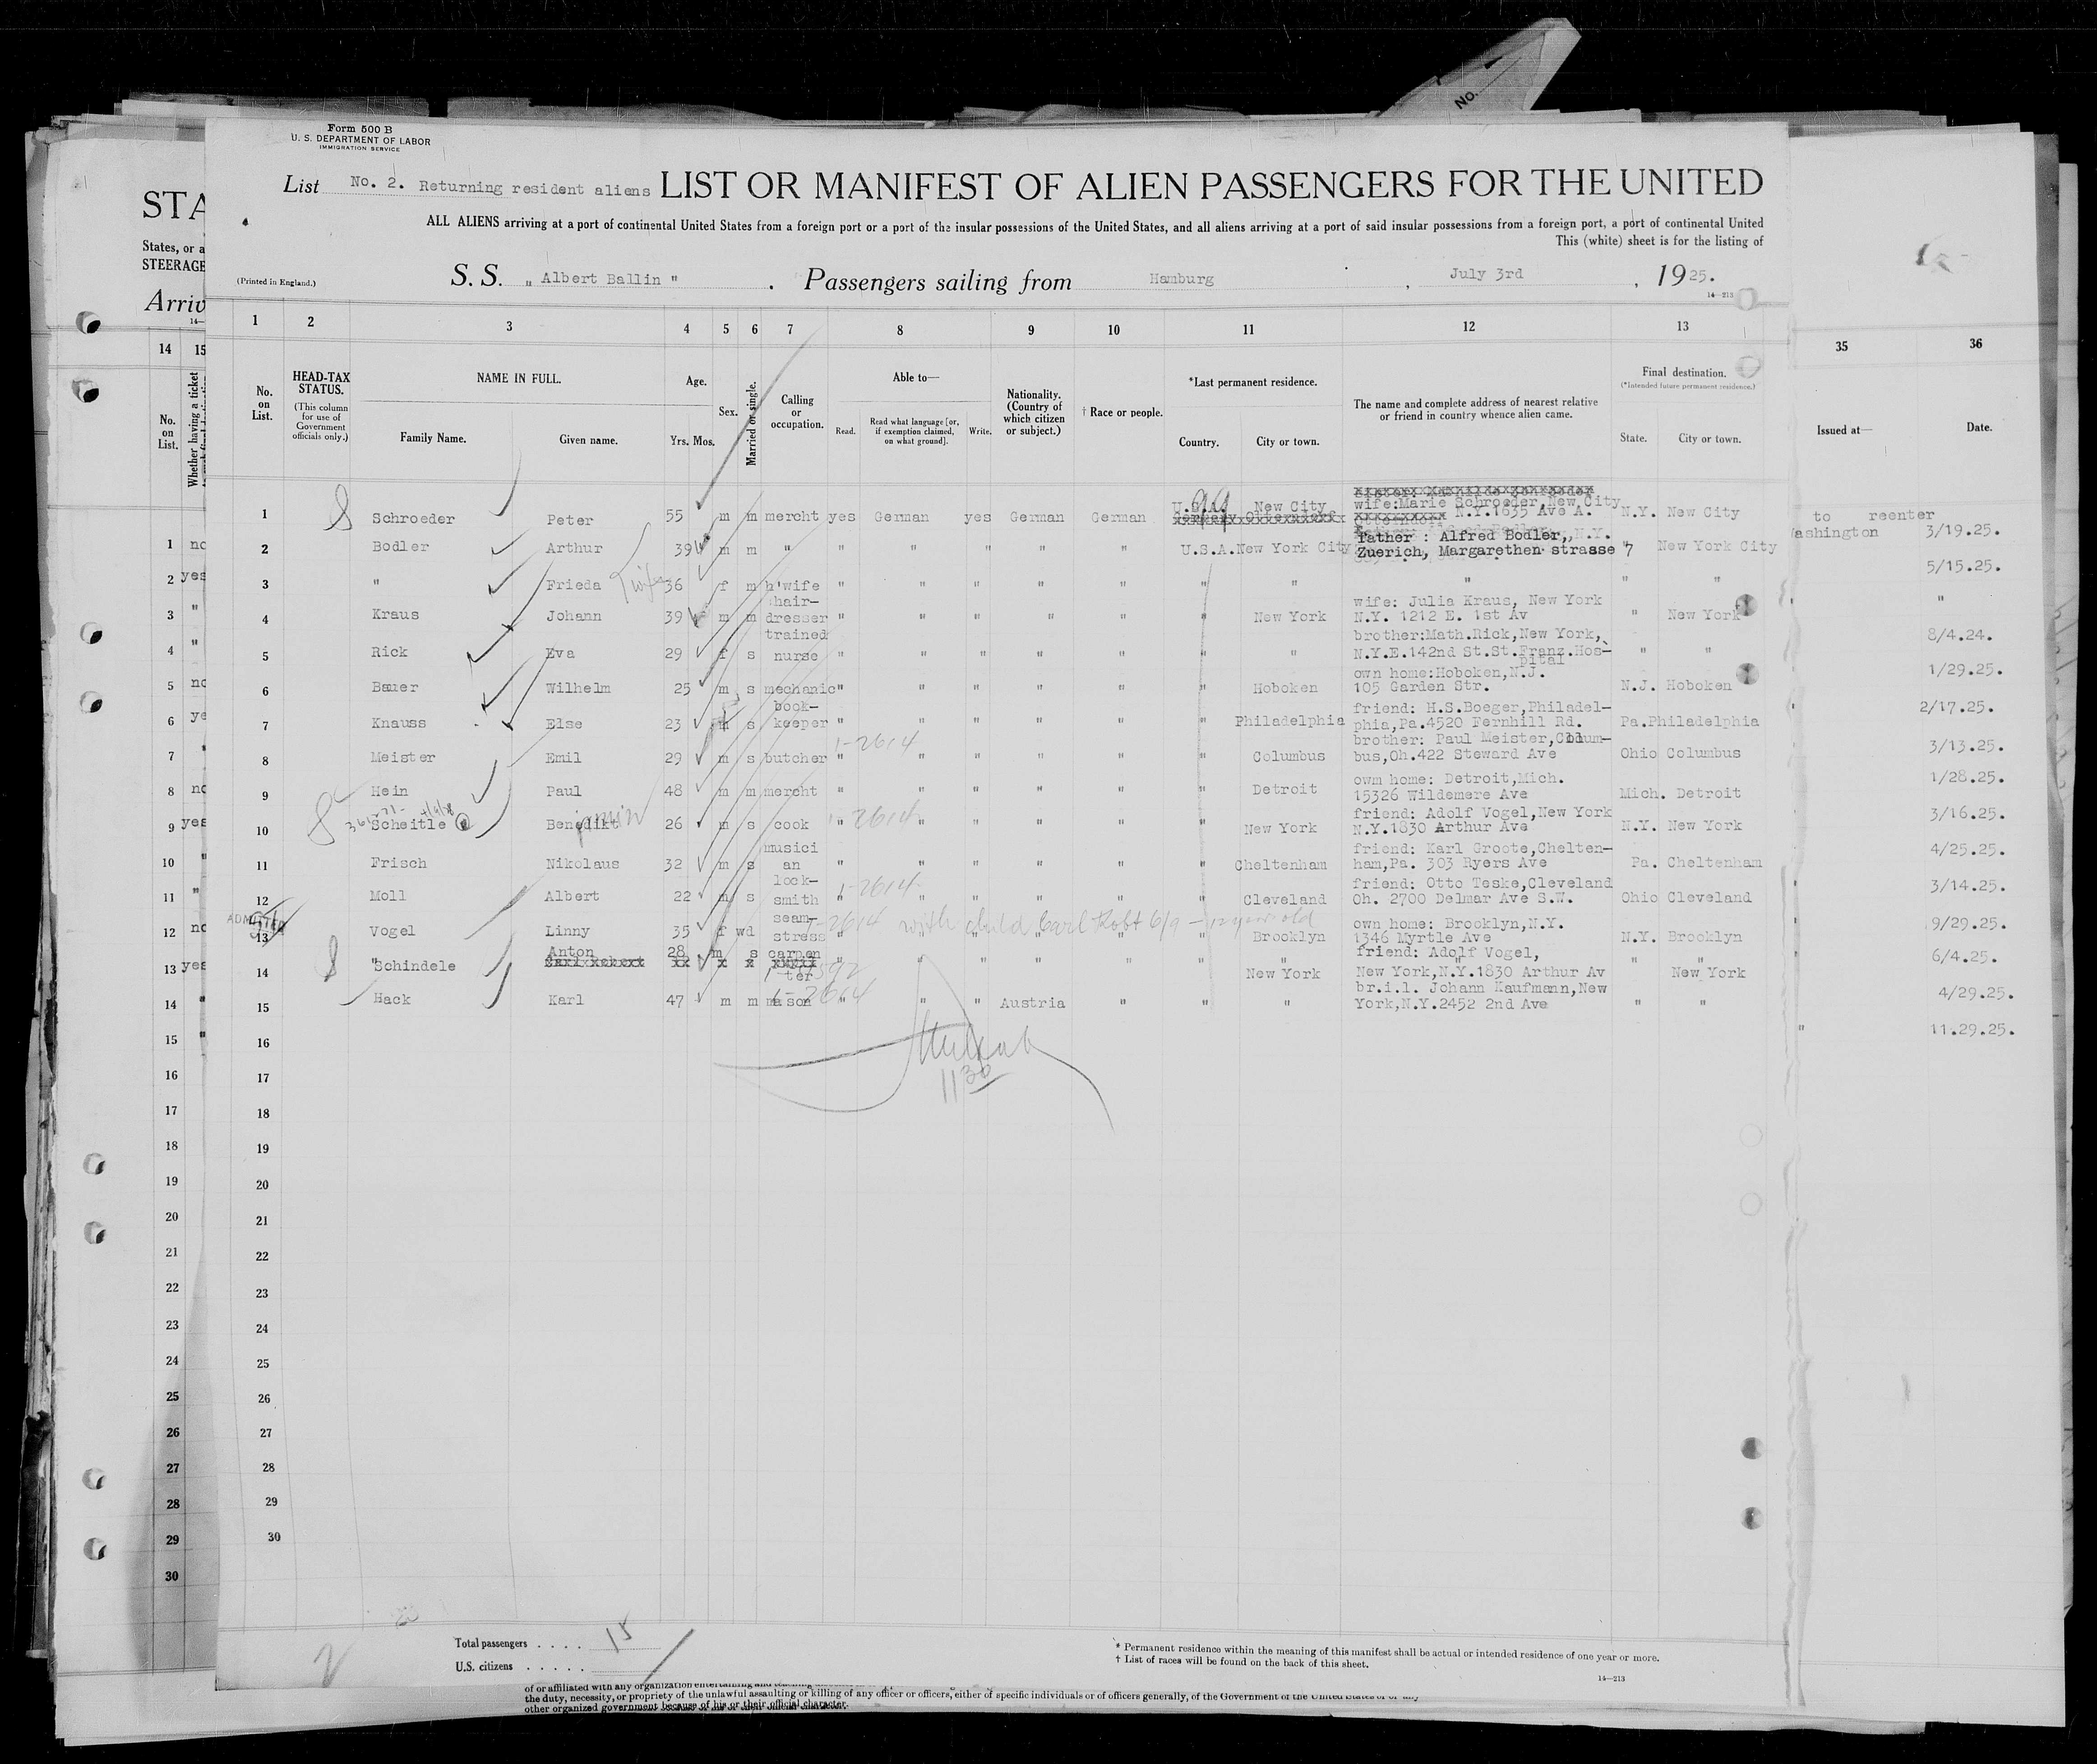 No.
Form 500 B
U. S. DEPARTMENT OF LABOR
IMMIGRATION SERVICE
List No. 2. Returning resident aliens LIST OR MANIFEST OF ALIEN PASSENGERS FOR THE UNITED
STA
ALL ALIENS arriving at a port of continental United States from a foreign port or a port of the insular possessions of the United States, and all aliens arriving at a port of said insular possessions from a foreign port, a port of continental United
States, or a
This (white) sheet is for the listing of
STEERAGE
(Printed in England.)
S. S. „ Albert Ballin " . Passengers sailing from Hamburg , July 3rd , 1925.
Arriv
14—213
1 2 3 4 5 6 7 8 9 10 11 12 13
14 15 35 36
No. on List.
HEAD-TAX STATUS.
(This column for use of Government officials only.)
NAME IN FULL.
Family Name. Given name.
Age.
Yrs. Mos.
Sex.
Married or single.
Calling or occupation.
Able to—
Read. Read what language [or, if exemption claimed, on what ground]. Write.
Nationality. (Country of which citizen or subject.)
† Race or people.
*Last permanent residence.
Country. City or town.
The name and complete address of nearest relative or friend in country whence alien came.
Final destination.
(*Intended future permanent residence.)
State. City or town.
No. on List.
Whether having a ticket
Issued at— Date.
1 Schroeder Peter 55 m m mercht yes German yes German German U.S.A. New City wife:Marie Schroeder,New City N.Y.1635 Ave A. N.Y. New City
2 Bodler Arthur 39 m m " " " " " " U.S.A.New York City Father : Alfred Bodler, Zuerich, Margarethen strasse 7 " New York City
3 " Frieda wife 36 f m h'wife " " " " " " " " " "
4 Kraus Johann 39 m m hair-dresser " " " " " " New York wife: Julia Kraus, New York N.Y. 1212 E. 1st Av " New York
5 Rick Eva 29 f s trained nurse " " " " " " " brother:Math.Rick,New York, N.Y.E.142nd St.St.Franz.Hos-pital " "
6 Bauer Wilhelm 25 m s mechanic " " " " " " Hoboken own home:Hoboken,N.J. 105 Garden Str. N.J. Hoboken
7 Knauss Else 23 s book-keeper " " " " " " Philadelphia friend: H.S.Boeger,Philadel-phia,Pa.4520 Fernhill Rd. Pa.Philadelphia
8 Meister Emil 29 m s butcher 1-2614 " " " " " " Columbus brother: Paul Meister,Colum-bus,Oh.422 Steward Ave Ohio Columbus
9 Hein Paul 48 m m mercht " " " " " " Detroit own home: Detroit,Mich. 15326 Wildemere Ave Mich. Detroit
10 Scheitle Benedikt 26 m s cook 1-2614 " " " " " " New York friend: Adolf Vogel,New York N.Y.1830 Arthur Ave N.Y. New York
11 Frisch Nikolaus 32 m s musici an " " " " " " Cheltenham friend: Karl Groote,Chelten-ham,Pa. 303 Ryers Ave Pa. Cheltenham
12 Moll Albert 22 m s lock-smith 1-2614 " " " " " " Cleveland friend: Otto Teske,Cleveland Oh. 2700 Delmar Ave S.W. Ohio Cleveland
ADMITTED
13 Vogel Linny 35 f wd seam-stress 1-2614 with child Carl Robt 6/9 - 12 year old " " " " " " Brooklyn own home: Brooklyn,N.Y. 1346 Myrtle Ave N.Y. Brooklyn
14 "Schindele Anton 28 m s carpen ter " " " " " " New York friend: Adolf Vogel, New York,N.Y.1830 Arthur Av " New York
15 Hack Karl 47 m m mason 1-2614 " " " Austria " " " br.i.l. Johann Kaufmann,New York,N.Y.2452 2nd Ave " "
16
17
1130
18
19
20
21
22
23
24
25
26
27
28
29
30
1 no
2 yes
3 "
4 "
5 no
6 ye
7 "
8 no
9 yes
10 "
11 "
12 no
13 yes
14 "
15 "
16
17
18
19
20
21
22
23
24
25
26
27
28
29
30
to reenter
ashington 3/19.25.
5/15.25.
"
8/4.24.
1/29.25.
2/17.25.
3/13.25.
1/28.25.
3/16.25.
4/25.25.
3/14.25.
9/29.25.
6/4.25.
4/29.25.
11.29.25.
2
Total passengers . . . . 15
U.S. citizens . . . . .
* Permanent residence within the meaning of this manifest shall be actual or intended residence of one year or more.
† List of races will be found on the back of this sheet.
14—213
of or affiliated with any organization
the duty, necessity, or propriety of the unlawful assaulting or killing of any officer or officers, either of specific individuals or of officers generally, of the Government of the United States or of any
other organized government because of his or their official character.